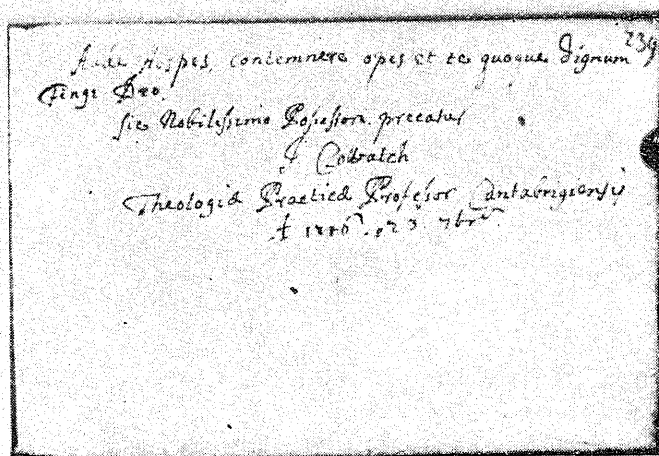 Aude Hospes contemnere opes et te quoque dignum 239
Finge Deo.
sic Nobilissimo Possessori precatur
J Colbatch
Theologiæ Practicæ Professor Cantabrigiensis
23 7bris